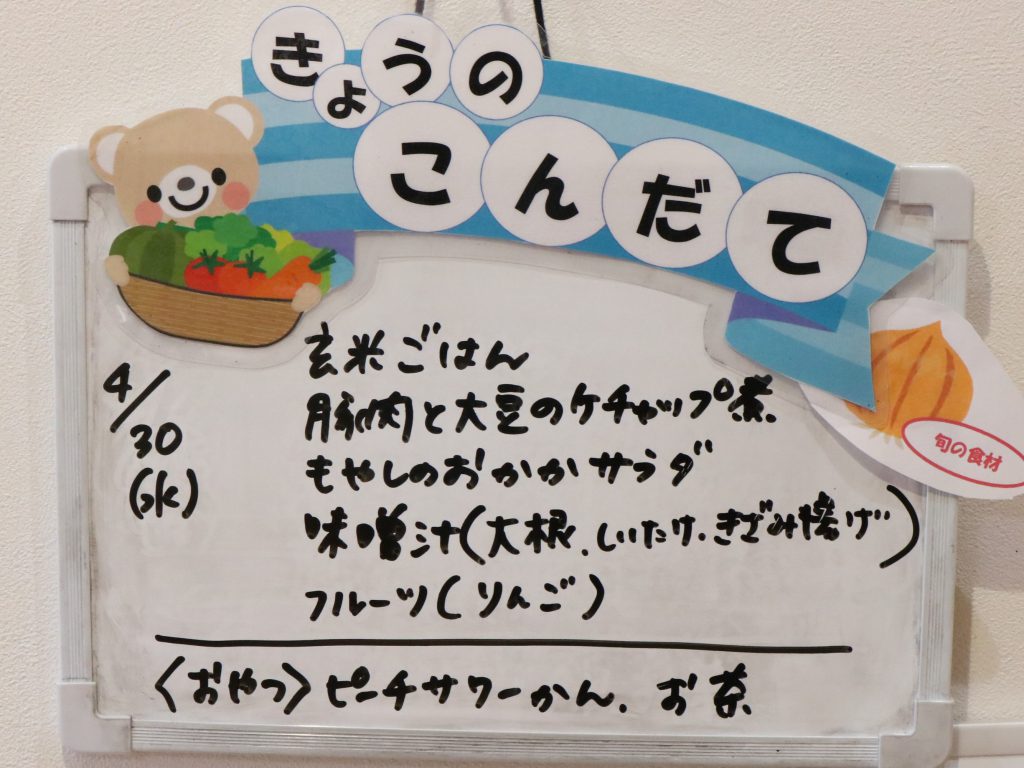 きょうの
こんだて
旬の食材
4/30
(水)
玄米ごはん
豚肉と大豆のケチャップ煮
もやしのおかかサラダ
味噌汁(大根、しいたけ、きざみ揚げ)
フルーツ(りんご)
〈おやつ〉ピーチサワーかん、お茶